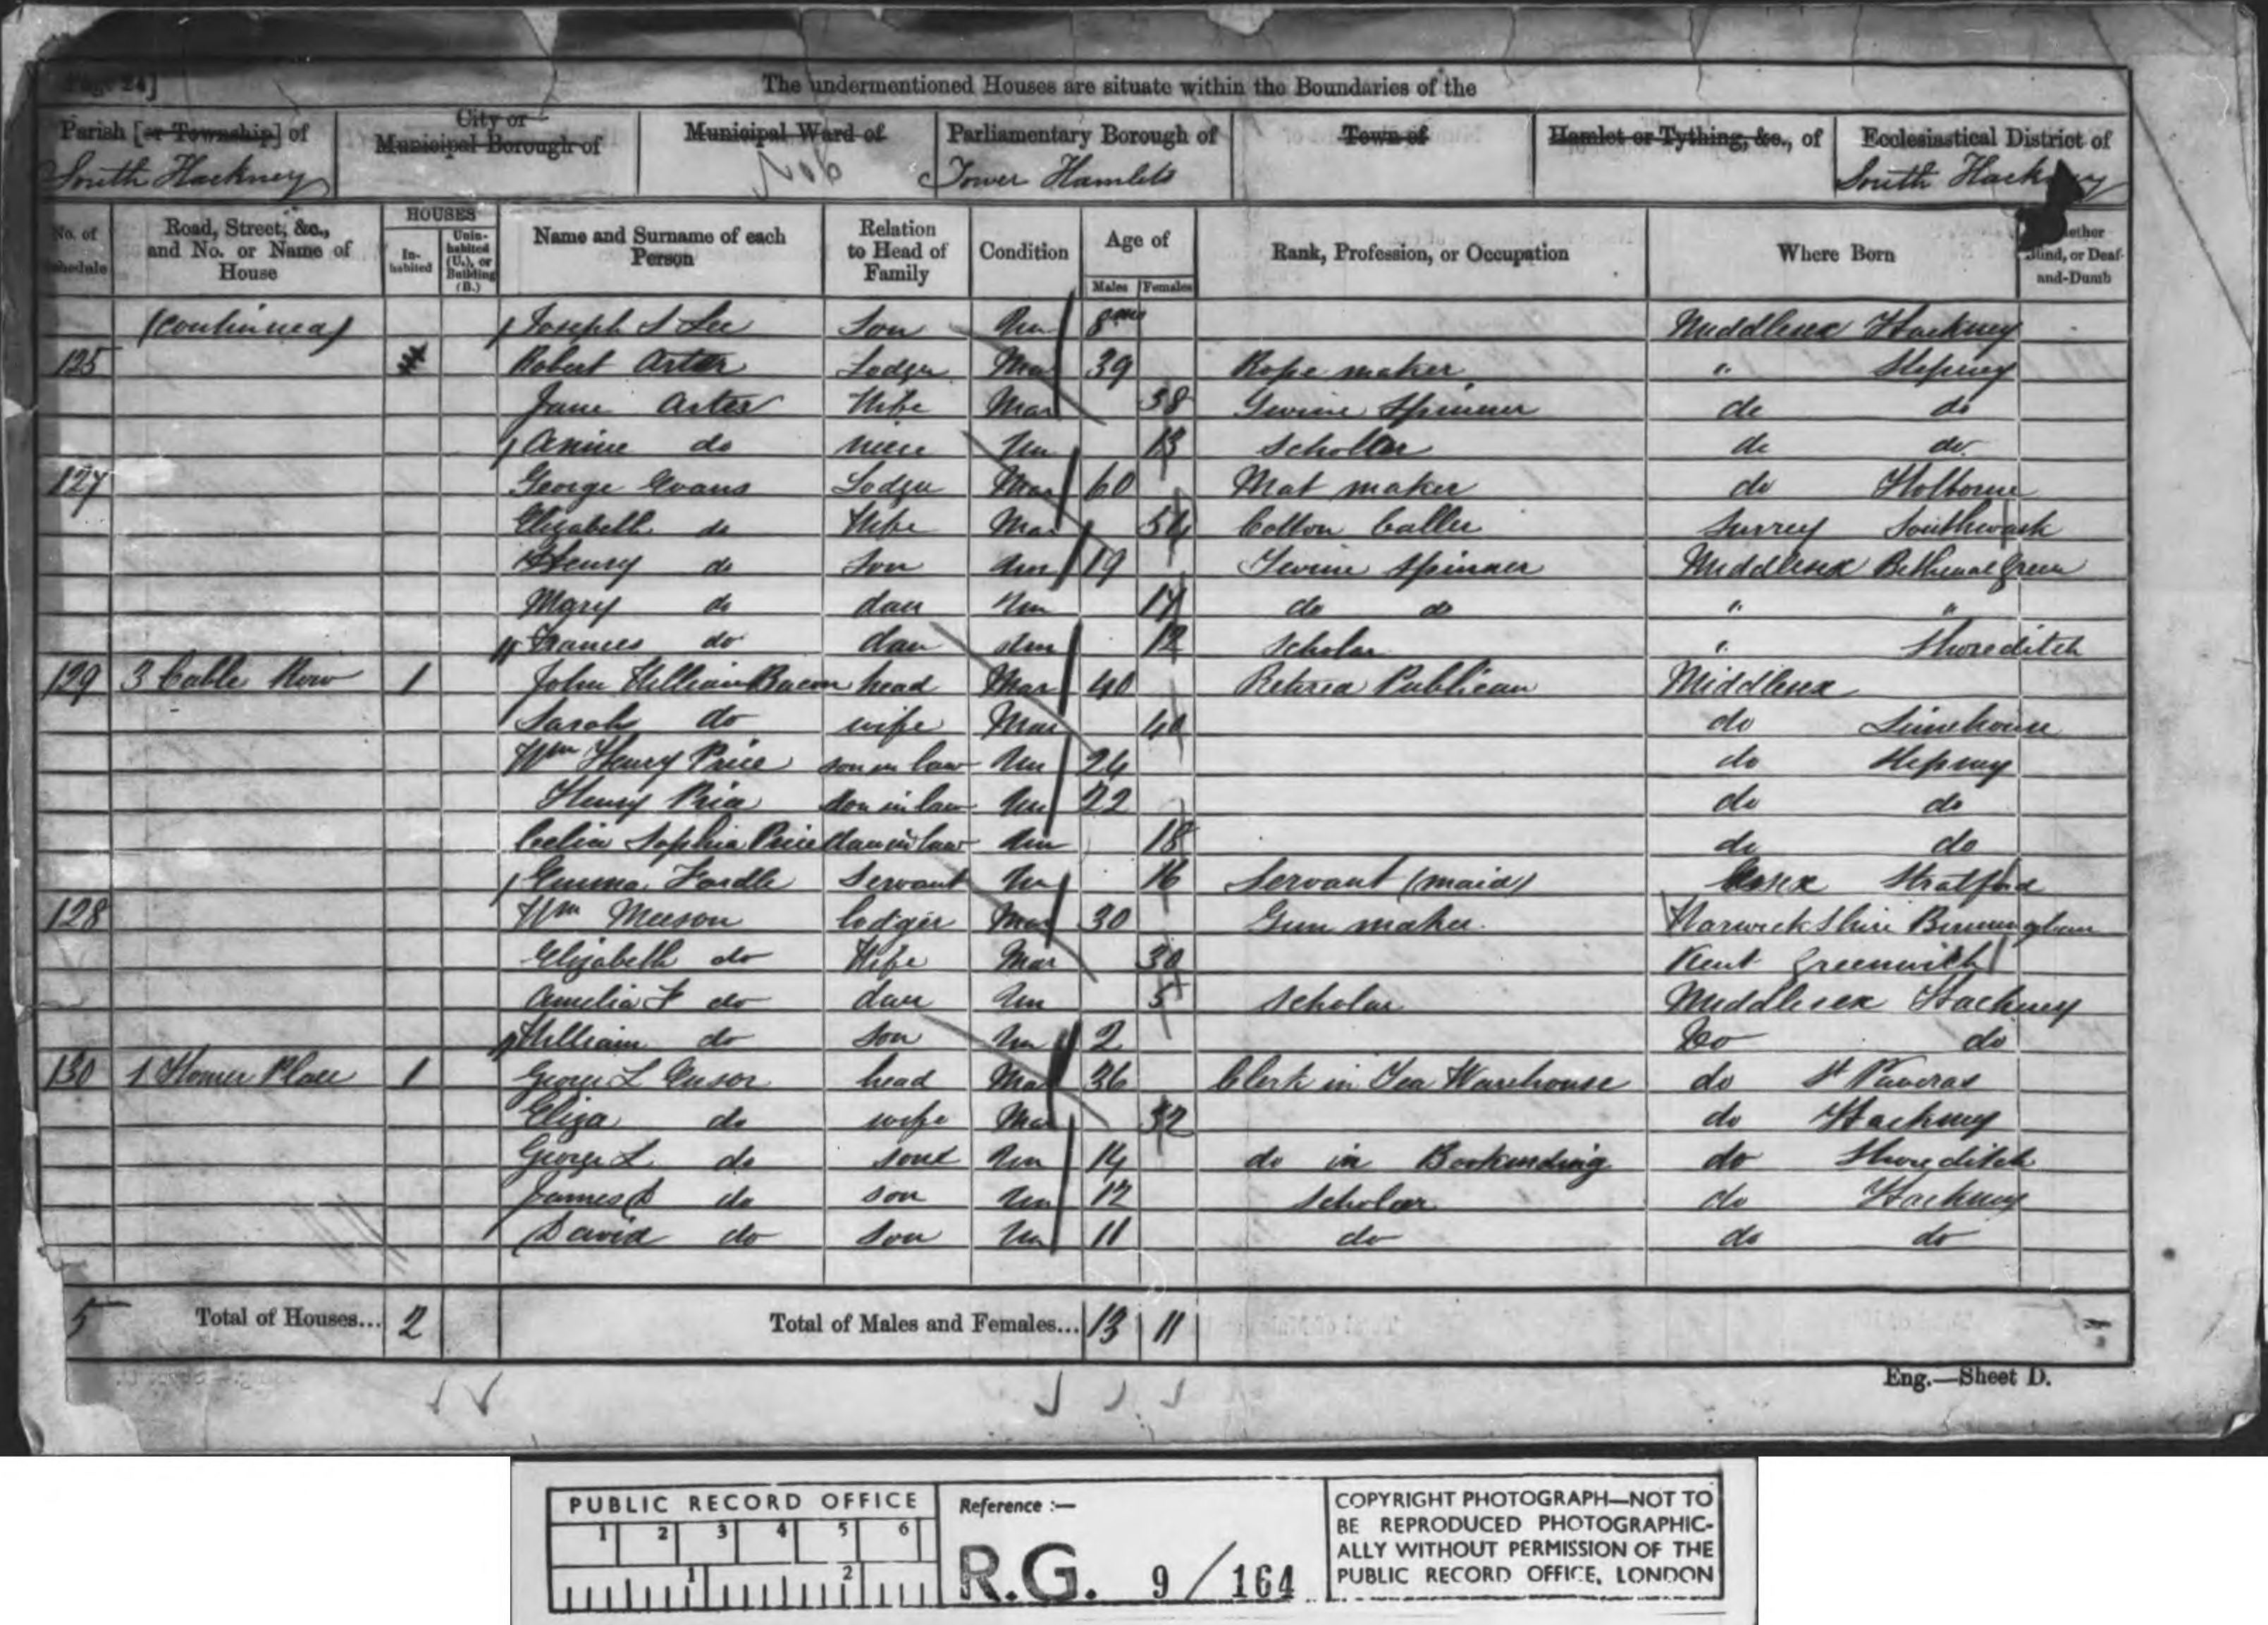 Page 24]
The undermentioned Houses are situate within the Boundaries of the
Parish [or Township] of City or Municipal Borough of Municipal Ward of Parliamentary Borough of Town of Hamlet or Tything, &c., of Ecclesiastical District of
South Hackney No 6 Tower Hamlets South Hackney
No. of Schedule Road, Street, &c., and No. or Name of House HOUSES Inhabited Uninhabited (U.), or Building (B.) Name and Surname of each Person Relation to Head of Family Condition Age of Males Females Rank, Profession, or Occupation Where Born Whether Blind, or Deaf-and-Dumb
(continued) Joseph S Lee Son Un 8 mo Middlesex Hackney
125 Robert Arter Lodger Mar 39 Rope maker " Stepney
Jane Arter Wife Mar 38 Twine Spinner do do
Annie do niece Un 13 Scholar do do
127 George Evans Lodger Mar 60 Mat maker do Holborne
Elizabeth do Wife Mar 54 Cotton Baller Surrey Southwark
Henry do Son Un 19 Twine Spinner Middlesex Bethenal Green
Mary do dau Un 17 do do " "
Frances do dau Un 12 Scholar " Shoreditch
129 3 Cable Row 1 John William Bacon head Mar 40 Retired Publican Middlesex
Sarah do wife Mar 40 do Limehouse
Wm Henry Price son in law Un 24 do Stepney
Henry Price son in law Un 22 do do
Celia Sophia Price dau in law Un 18 do do
Emma Fardle Servant Un 16 Servant (maid) Essex Stratford
128 Wm Meeson lodger Mar 30 Gun maker Warwickshire Birmingham
Elizabeth do Wife Mar 30 Kent Greenwich
Amelia F do dau Un 5 Scholar Middlesex Hackney
William do son Un 2 Do do
130 1 Homer Place 1 George L Ensor head Mar 36 Clerk in Tea Warehouse do St Pancras
Eliza do wife Mar 32 do Hackney
George L do son Un 14 do in Bookbinding do Shoreditch
James do son Un 12 Scholar do Hackney
David do Son Un 11 do do do
5 Total of Houses... 2 Total of Males and Females... 13 11
Eng.—Sheet D.
PUBLIC RECORD OFFICE
1 2 3 4 5 6
1 2
Reference :—
R.G. 9/164
COPYRIGHT PHOTOGRAPH—NOT TO
BE REPRODUCED PHOTOGRAPHIC-
ALLY WITHOUT PERMISSION OF THE
PUBLIC RECORD OFFICE, LONDON